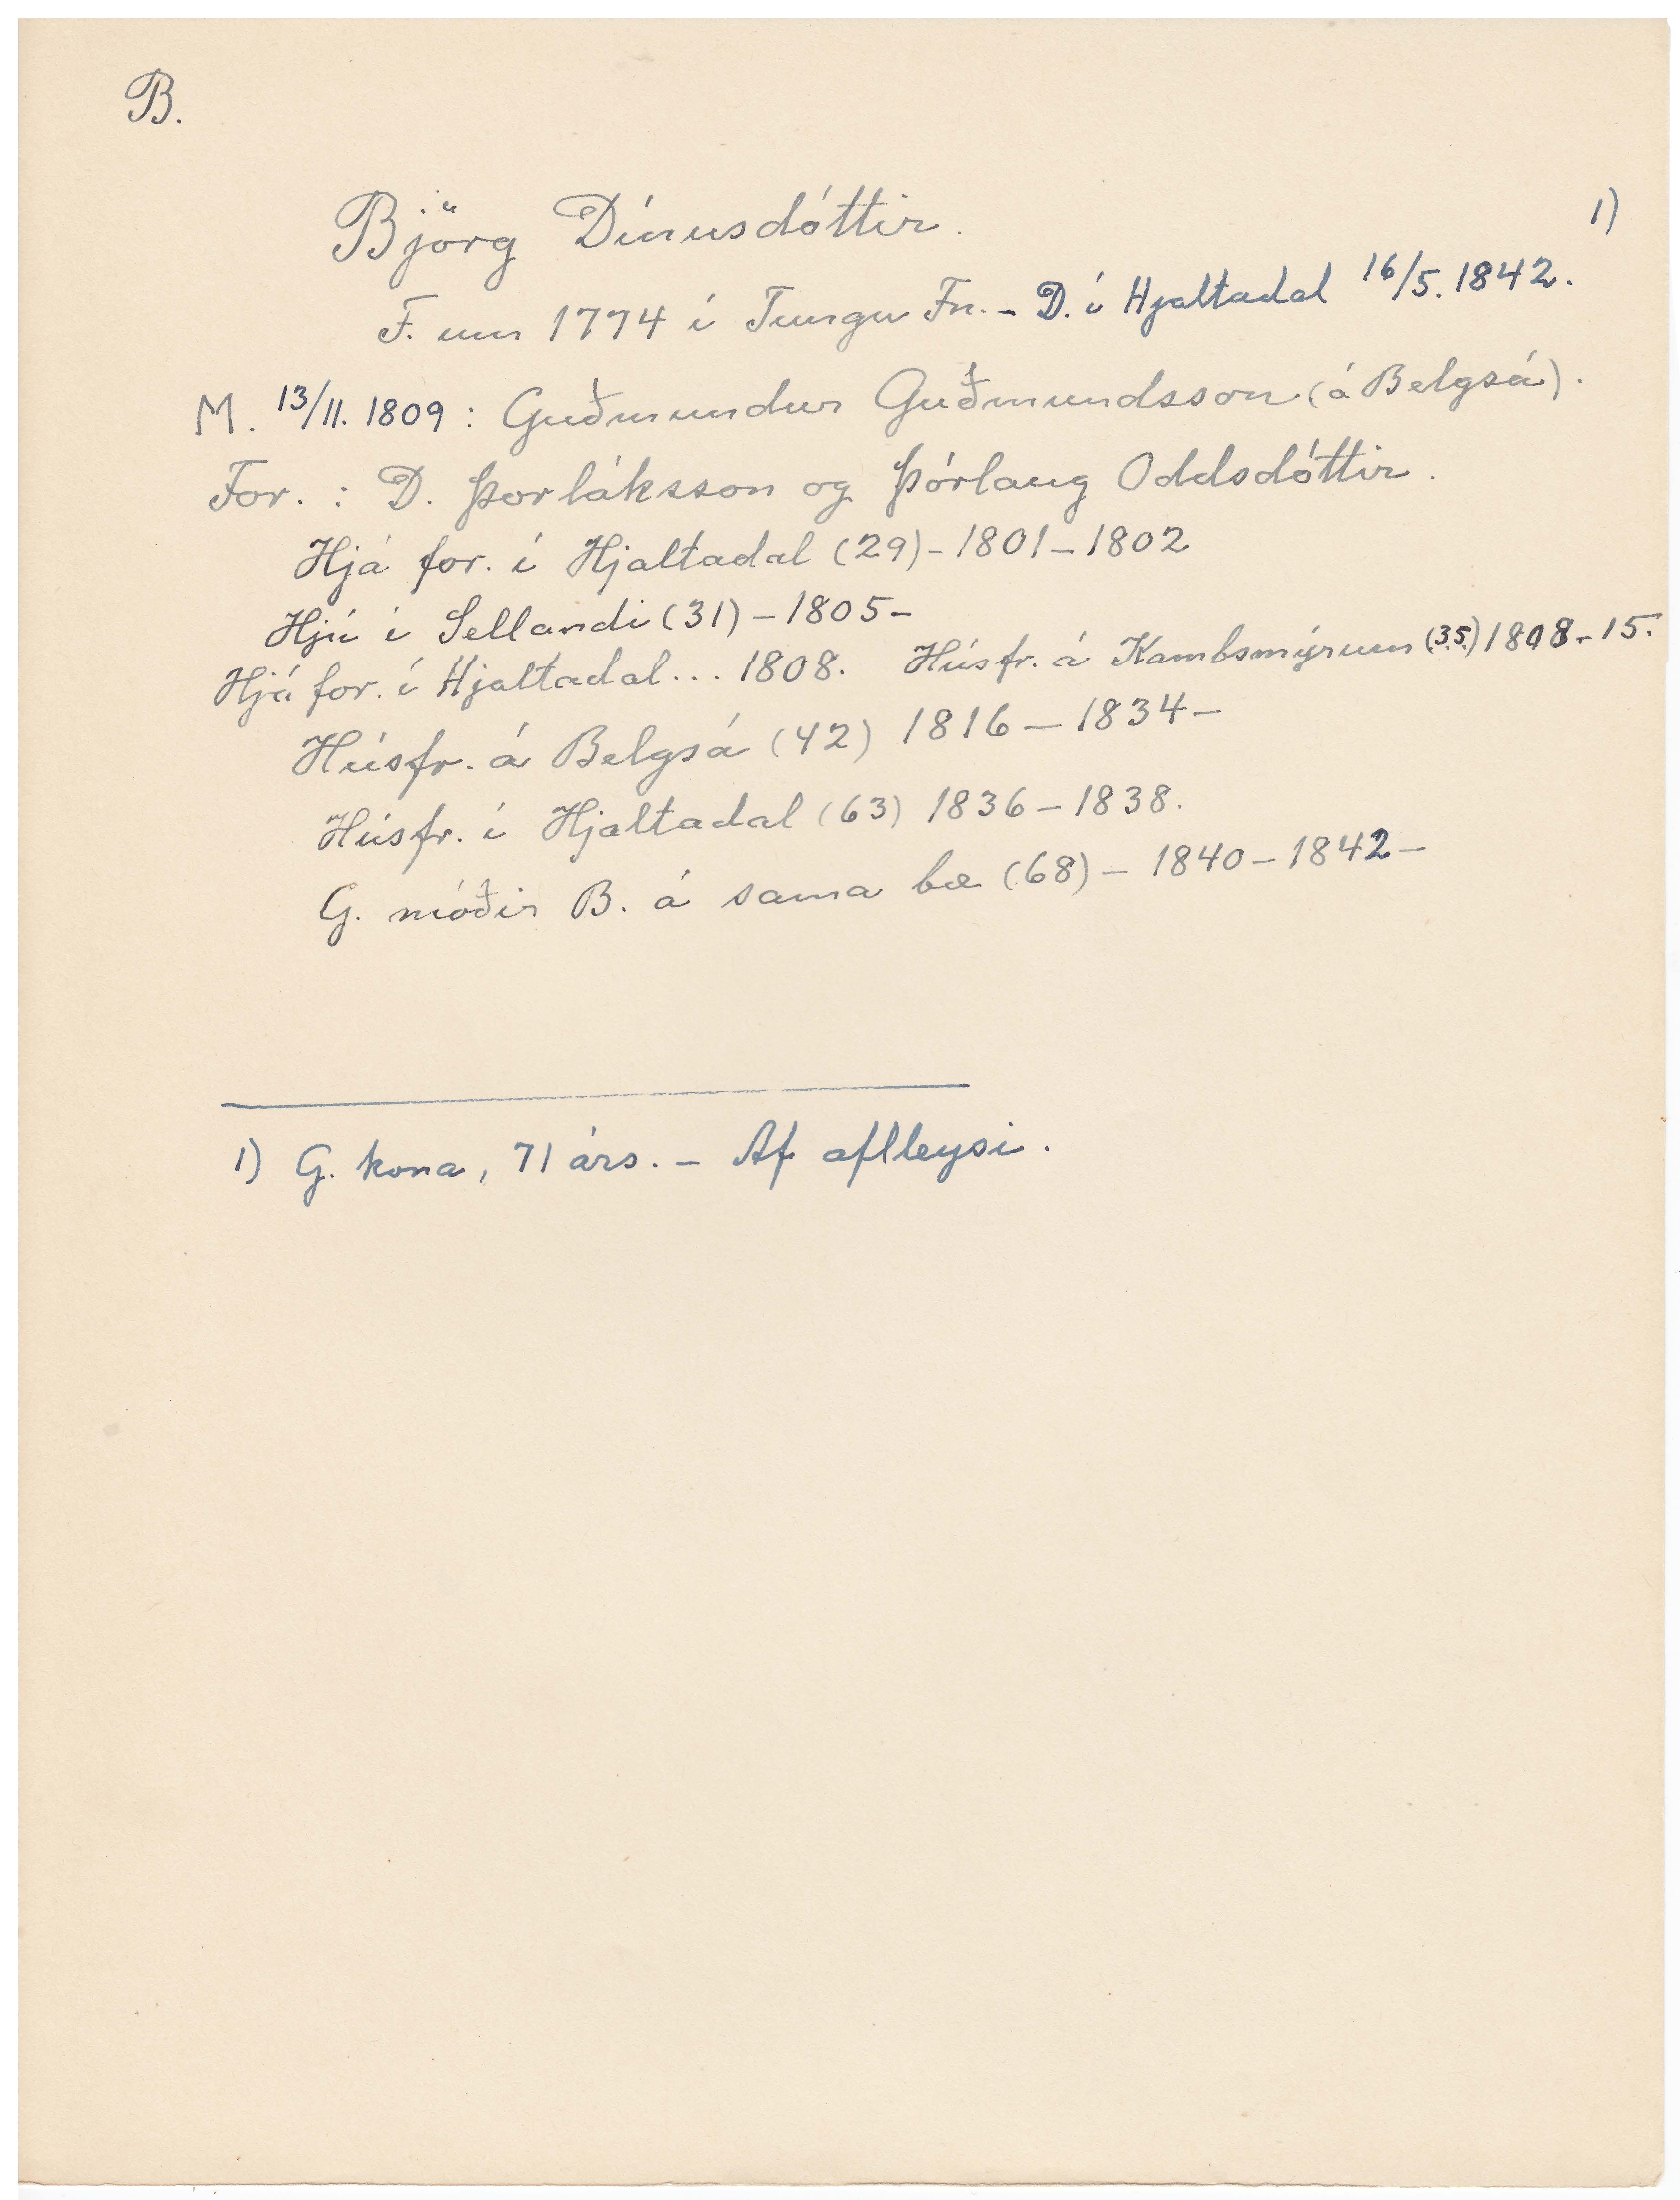 B.
Björg Dínusdóttir.
F. um 1774 í Tungu Fn. - D. í Hjaltadal 16/5. 1842. 1)
M. 13/11. 1809 : Guðmundur Guðmundsson (á Belgsá).
For. : D. Þorláksson og Þórlaug Oddsdóttir.
Hjá for. í Hjaltadal (29) - 1801 - 1802
Hjú í Sellandi (31) - 1805 -
Hjá for. í Hjaltadal... 1808. Húsfr. á Kambsmýrum (35) 1808 - 15.
Húsfr. á Belgsá (42) 1816 - 1834 -
Húsfr. í Hjaltadal (63) 1836 - 1838.
G. móðir B. á sama bæ (68) - 1840 - 1842 -
1) G. kona, 71 árs. - Af aflleysi.